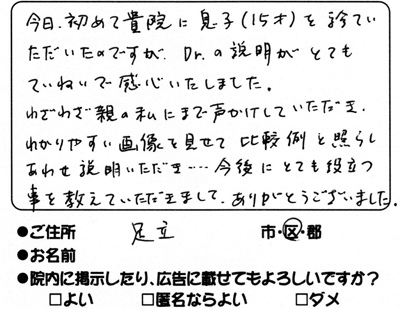 今日、初めて貴院に息子(15才)を診てい
ただいたのですが、Dr.の説明がとても
ていねいで感心いたしました。
わざわざ親の私にまで声かけしていただき、
わかりやすい画像を見せて比較例と照らし
あわせ説明いただき…今後にとても役立つ
事を教えていただきまして、ありがとうございました。
●ご住所 足立 市・区・郡
●お名前
●院内に掲示したり、広告に載せてもよろしいですか？
□よい □匿名ならよい □ダメ